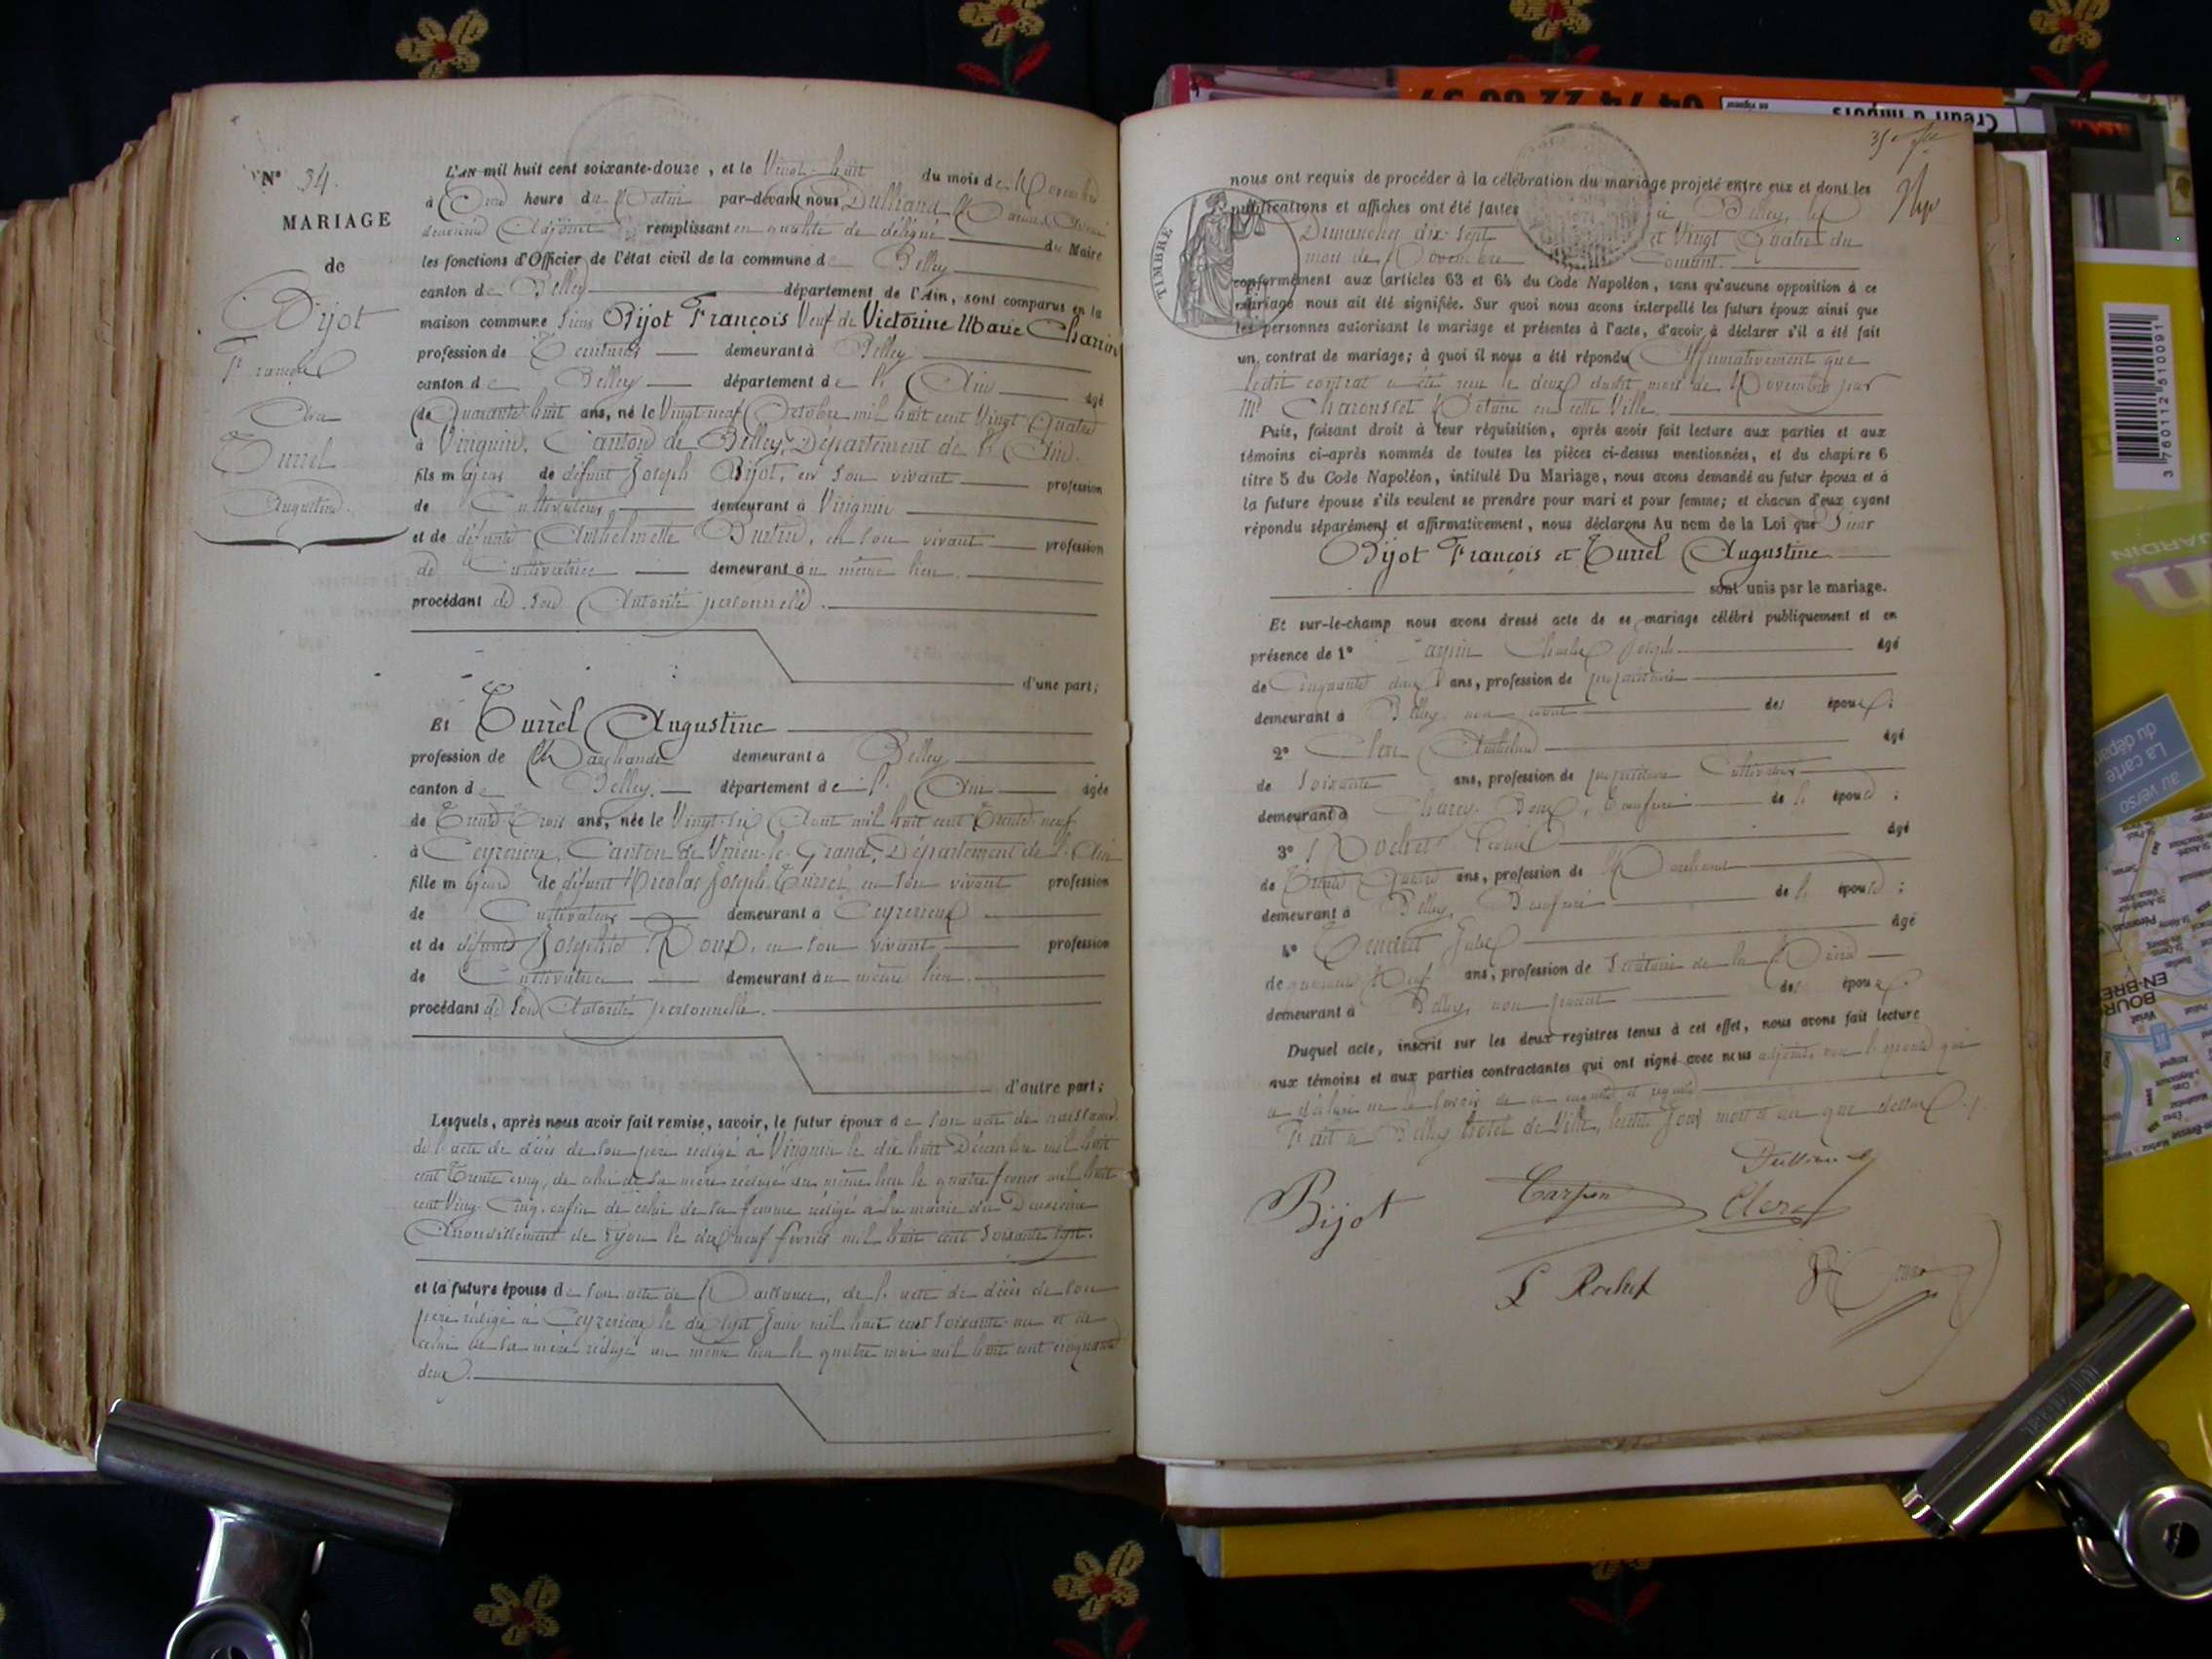 N° 34.
MARIAGE
de
Bijot
François
Et à
Turrel
Augustine.
L'AN mil huit cent soixante-douze, et le Vingt-huit du mois de Novembre
à Onze heure du Matin par-devant nous Dullriand
deuxième Adjoint remplissant en qualité de délégué du Maire
les fonctions d'Officier de l'état civil de la commune de Belley
canton de Belley département de l'Ain, sont comparus en la
maison commune Sieur Bijot François Veuf de Victorine Marie Charrin
profession de demeurant à Belley
canton de Belley département de l' Ain âgé
de Quarante huit ans, né le Vingt neuf Octobre mil huit cent Vingt Quatre
à Virignin, Canton de Belley, Département de l'Ain.
fils majeur de défunt Joseph Bijot, en son vivant profession
de Cultivateur demeurant à Virignin
et de défunte Anthelmette Burtin, en son vivant profession
de Cultivatrice demeurant au même lieu.
procédant de son Autorité personnelle.
d'une part;
Et Turrel Augustine
profession de Marchande demeurant à Belley
canton de Belley. département de l' Ain âgée
de Trente-Trois ans, née le Vingt-six Aout mil huit cent Trente-neuf
à Ceyzerieux, Canton de Virieu-le-Grand, Département de l'Ain
fille majeure de défunt Nicolas Joseph Turrel, en son vivant profession
de Cultivateur demeurant à Ceyzerieux
et de défunte Josephte Roux, en son vivant profession
de Cultivatrice demeurant au même lieu.
procédant de son Autorité personnelle.
d'autre part;
Lesquels, après nous avoir fait remise, savoir, le futur époux de son acte de naissance
de l'acte de décès de son père rédigé à Virignin le dix huit Décembre mil huit
cent Trente cinq, de celui de sa mère rédigé au même lieu le quatre février mil huit
cent Vingt-Cinq, enfin de celui de sa femme rédigé à la mairie du Deuxième
Arrondissement de Lyon le dix neuf février mil huit cent Soixante sept.
et la future épouse de son acte de Naissance, de l'acte de décès de son
père rédigé à Ceyzerieux le dix sept Juin mil huit cent Soixante-un et de
celui de sa mère rédigé au même lieu le quatre mai mil huit cent cinquante
deux.
nous ont requis de procéder à la célébration du mariage projeté entre eux et dont les
publications et affiches ont été faites à Belley, les
Dimanches dix-sept et Vingt Quatre du
mois de Novembre Courant.
TIMBRE
conformément aux articles 63 et 64 du Code Napoléon, sans qu'aucune opposition à ce
mariage nous ait été signifiée. Sur quoi nous avons interpellé les futurs époux ainsi que
les personnes autorisant le mariage et présentes à l'acte, d'avoir à déclarer s'il a été fait
un contrat de mariage; à quoi il nous a été répondu Affirmativement que
ledit contrat a été reçu le deux dudit mois de Novembre par
Me Charousset Notaire en cette Ville.
Puis, faisant droit à leur réquisition, après avoir fait lecture aux parties et aux
témoins ci-après nommés de toutes les pièces ci-dessus mentionnées, et du chapitre 6
titre 5 du Code Napoléon, intitulé Du Mariage, nous avons demandé au futur époux et à
la future épouse s'ils veulent se prendre pour mari et pour femme; et chacun d'eux ayant
répondu séparément et affirmativement, nous déclarons Au nom de la Loi que Sieur
Bijot François et Turrel Augustine
sont unis par le mariage.
Et sur-le-champ nous avons dressé acte de ce mariage célébré publiquement et en
présence de 1° Carpin Charles Joseph âgé
de Cinquante deux ans, profession de propriétaire
demeurant à Belley, non parent des époux;
2° Clerc Anthelme âgé
de Soixante ans, profession de propriétaire Cultivateur
demeurant à Beaufrère de l'épouse;
3° Rochet Louis âgé
de Trente Quatre ans, profession de Marchand
demeurant à Belley, Beaufrère de l'épouse;
4° Jules âgé
de quarante Neuf ans, profession de Secrétaire de la Mairie
demeurant à Belley, non parent des époux.
Duquel acte, inscrit sur les deux registres tenus à cet effet, nous avons fait lecture
aux témoins et aux parties contractantes qui ont signé avec nous adjoint, non l'épouse qui
a déclaré ne le savoir de ce enquise et requise
Fait à Belley hotel de Ville, lesdits Jour mois et an que dessus.
Bijot Carpin Clerc
L Rochet
3 760112 510091
La carte
du départ
au verso
JARDIN
BOURG
EN-BRE